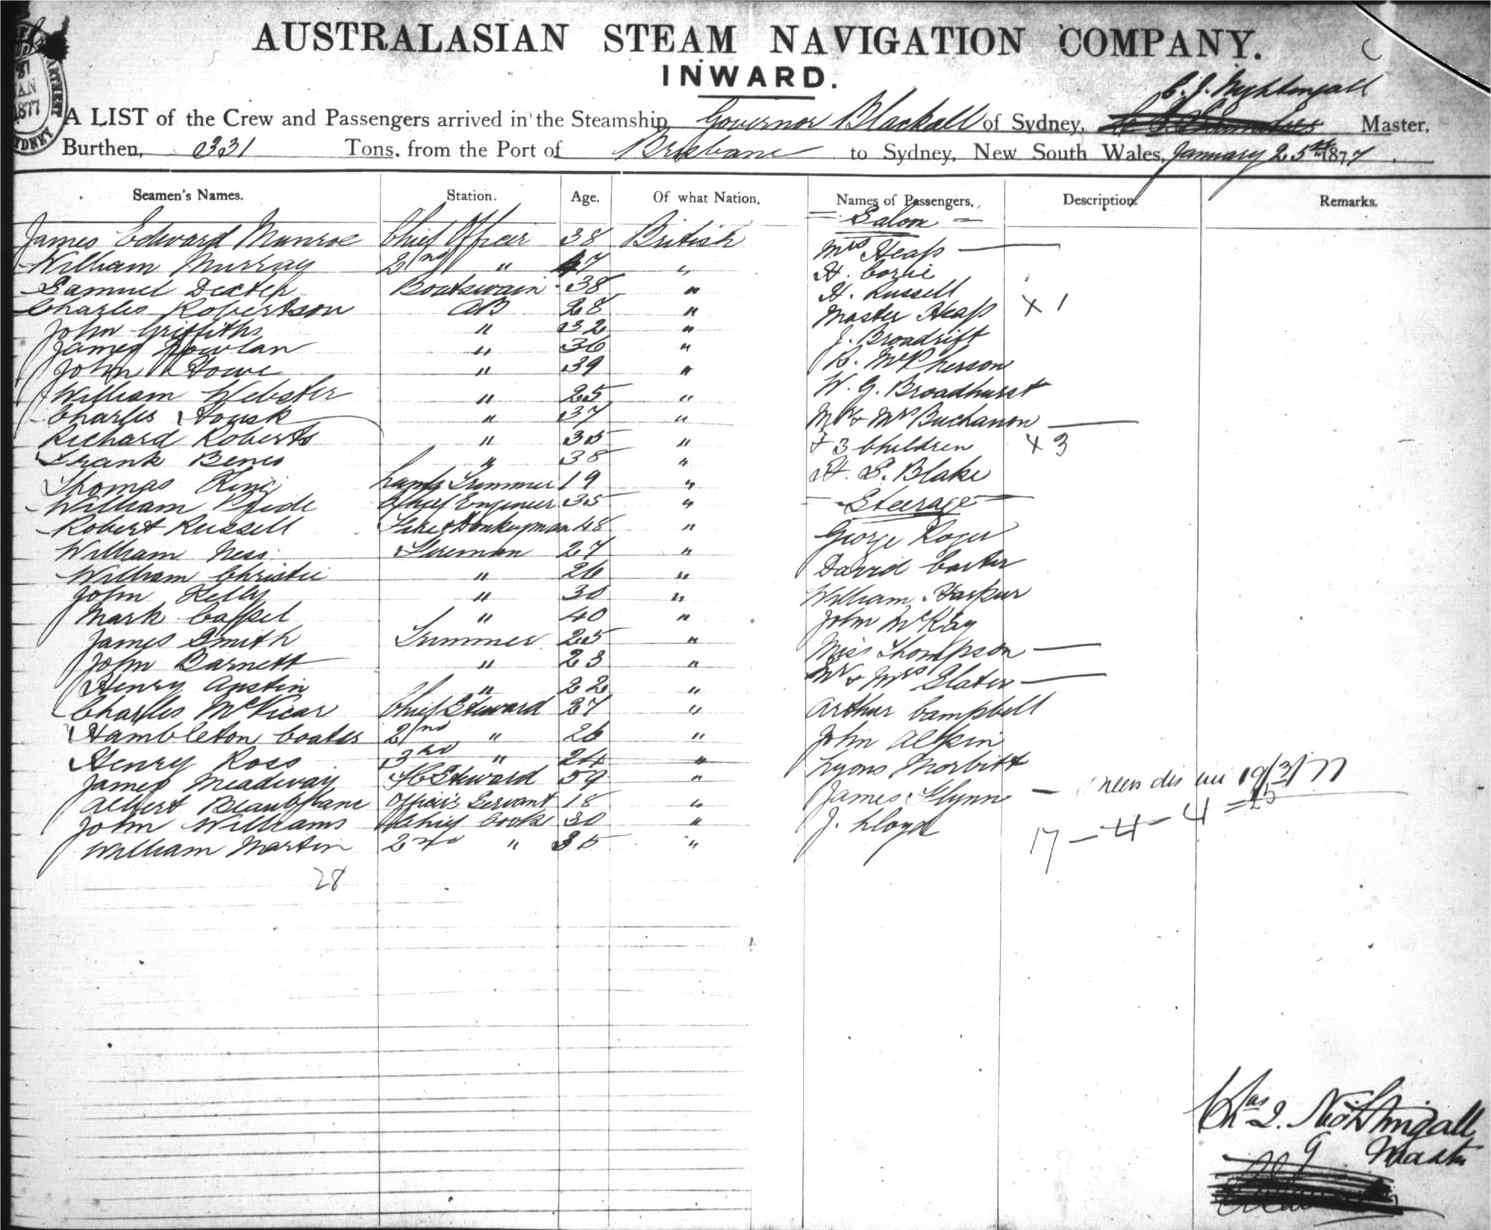 AUSTRALASIAN STEAM NAVIGATION COMPANY.
INWARD.
C. J. Nightingall
A LIST of the Crew and Passengers arrived in the Steamship Governor Blackall of Sydney, Master,
Burthen, 331 Tons, from the Port of Brisbane to Sydney, New South Wales, January 25th 1877
Seamen's Names. Station. Age. Of what Nation. Names of Passengers. Description. Remarks.
= Salon =
James Edward Munroe Chief Officer 38 British Mrs Heap
William Murray 2nd " 47 " H.
Samuel Dexter Boatswain 38 " H. Russell
Charles Robertson AB 28 " Master Heap X 1
John Griffiths " 32 " J. Broadrift
James Nowlan " 36 " R. McPherson
John Howe " 39 "
William Webster " 25 " W. G. Broadhurst
Charles Housk " 37 " Mr & Mrs Buchanon
Richard Roberts " 35 " & 3 Children X 3
Frank Benes " 38 " H. S. Blake
Thomas King Lamp Trimmer 19 "
William Pride Chief Engineer 35 " - Steerage -
Robert Russell Fire & Donkeyman 48 " George Roger
William Ness Fireman 27 " David Carter
William Christie " 26 "
John Kelly " 30 " William Harpur
Mark Cassel " 40 " John McKay
James Smith Trimmer 25 " Miss Thompson
John Barnett " 23 " Mr & Mrs Slater
Henry Austin " 22 "
Charles McVicar Chief Steward 37 " Arthur Campbell
Hambleton Coates 2nd " 26 " John Alpin
Henry Ross 3rd " 24 " Lyons Morbitt
James Meadway Steward 59 " James Flynn 19/3/77
Albert Officers Servant 18 "
John Williams Chief Cook 30 " J. Lloyd 17 - 4 - 4 = 25
William Martin 2nd " 35 "
28
Chas J. Nightingall
Master